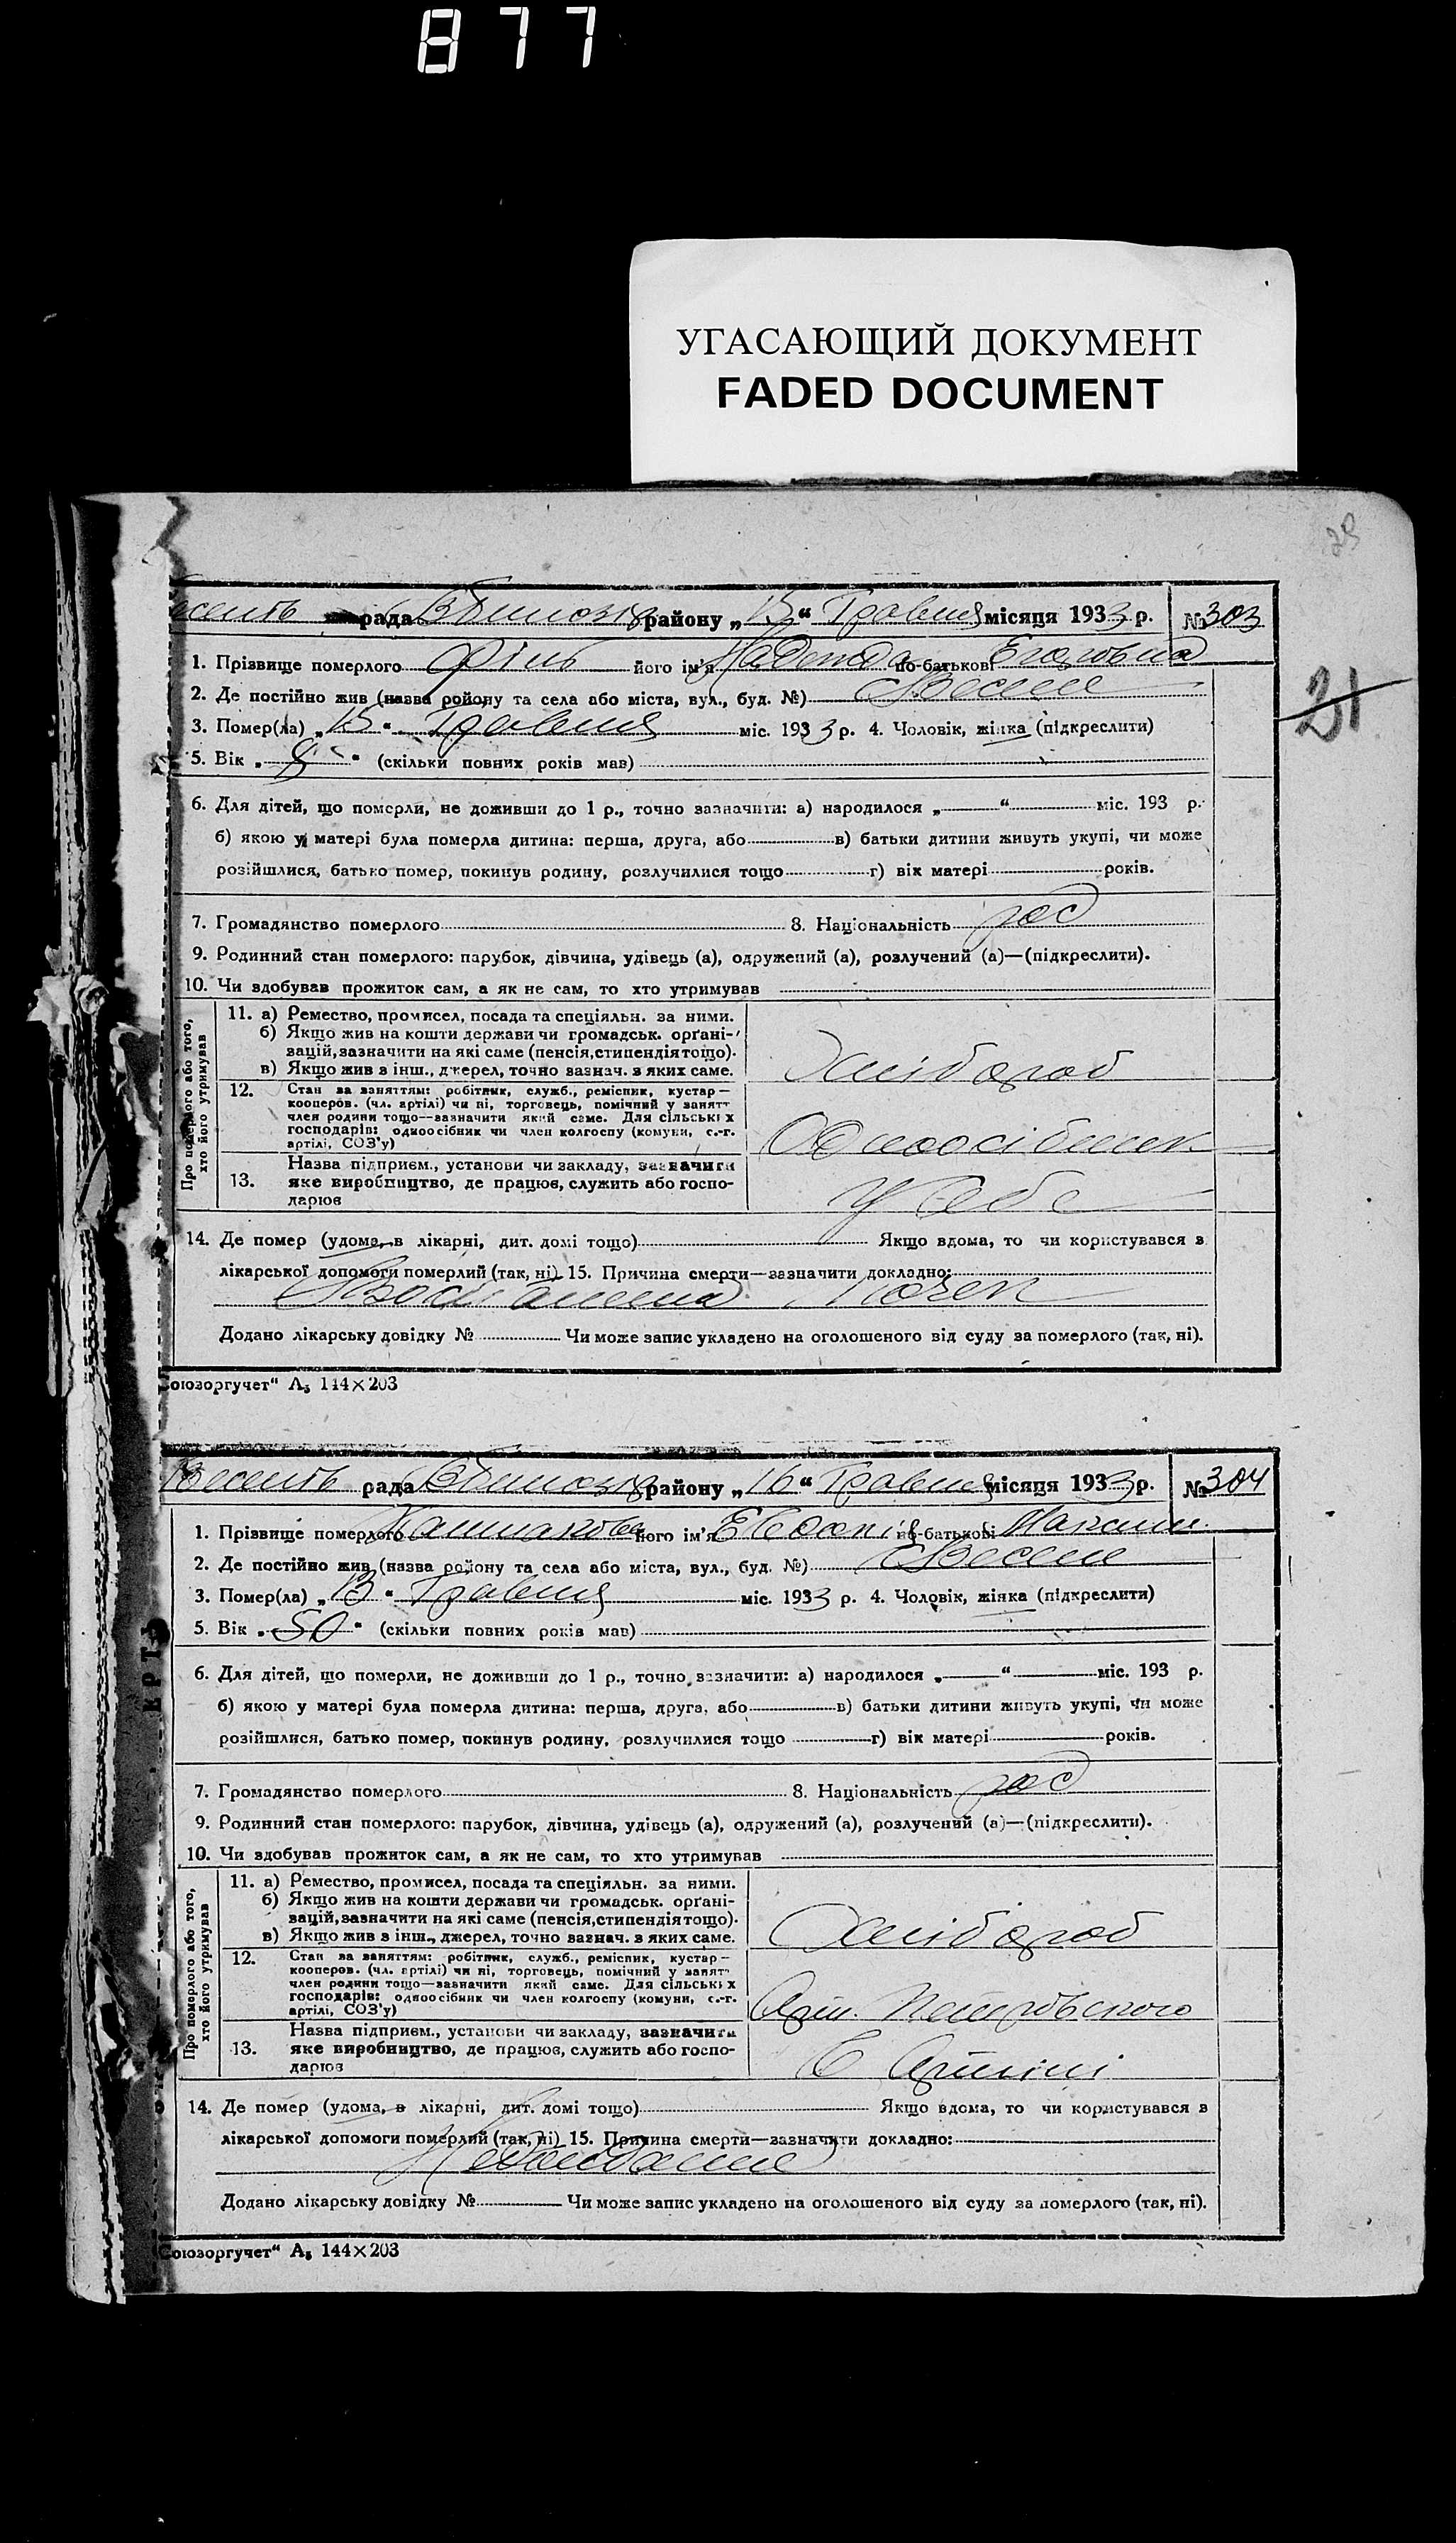 877
УГАСАЮЩИЙ ДОКУМЕНТ
FADED DOCUMENT
29
рада району „15“ Травня місяця 1933 р. № 303
21
1. Прізвище померлого Філь його ім'я Надежда по-батькові Егоровна
2. Де постійно жив (назва ройону та села або міста, вул., буд. №) Веселе
3. Помер(ла) „15“ Травня міс. 1933 р. 4. Чоловік, жінка (підкреслити)
5. Вік „ “ (скільки повних років мав)
6. Для дітей, що померли, не доживши до 1 р., точно зазначити: а) народилося „ “ міс. 193 р.
б) якою у матері була померла дитина: перша, друга, або в) батьки дитини живуть укупі, чи може
розійшлися, батько помер, покинув родину, розлучилися тощо г) вік матері років.
7. Громадянство померлого 8. Національність рос
9. Родинний стан померлого: парубок, дівчина, удівець (а), одружений (а), розлучений (а)—(підкреслити).
10. Чи здобував прожиток сам, а як не сам, то хто утримував
Про померлого або того,
хто його утримував
11. а) Ремество, промисел, посада та спеціяльн. за ними.
б) Якщо жив на кошти держави чи громадськ. орґані-
зацій, зазначити на які саме (пенсія, стипендія тощо).
в) Якщо жив з інш., джерел, точно зазнач. з яких саме.
Хлібороб
12. Стан за заняттям: робітник, служб., ремісник, кустар—
кооперов. (чл. артілі) чи ні, торговець, помічний у занятт
член родини тощо—зазначити який саме. Для сільських
господарів: одноосібник чи член колгоспу (комуни, с.-г.
артілі, СОЗ'у)
Одноосібник
13. Назва підприєм., установи чи закладу, зазначити
яке виробництво, де працює, служить або госпо-
дарює
У себе
14. Де помер (удома, в лікарні, дит. домі тощо) Якщо вдома, то чи користувався з
лікарської допомоги померлий (так, ні) 15. Причина смерти—зазначити докладно:
Додано лікарську довідку № Чи може запис укладено на оголошеного від суду за померлого (так, ні).
оюзоргучет" А5 144×203
рада району „16“ Травня місяця 1933 р. № 304
1. Прізвище померлого його ім'я Евдокі по-батькові Максим.
2. Де постійно жив (назва ройону та села або міста, вул., буд. №) Веселе
3. Помер(ла) „13“ Травня міс. 1933 р. 4. Чоловік, жінка (підкреслити)
5. Вік „50“ (скільки повних років мав)
ЕРТЬ
6. Для дітей, що померли, не доживши до 1 р., точно зазначити: а) народилося „ “ міс. 193 р.
б) якою у матері була померла дитина: перша, друга, або в) батьки дитини живуть укупі, чи може
розійшлися, батько помер, покинув родину, розлучилися тощо г) вік матері років.
7. Громадянство померлого 8. Національність рос
9. Родинний стан померлого: парубок, дівчина, удівець (а), одружений (а), розлучений (а)—(підкреслити).
10. Чи здобував прожиток сам, а як не сам, то хто утримував
Про померлого або того,
хто його утримував
11. а) Ремество, промисел, посада та спеціяльн. за ними.
б) Якщо жив на кошти держави чи громадськ. орґані-
зацій, зазначити на які саме (пенсія, стипендія тощо).
в) Якщо жив з інш., джерел, точно зазнач. з яких саме.
Хлібороб
12. Стан за заняттям: робітник, служб., ремісник, кустар—
кооперов. (чл. артілі) чи ні, торговець, помічний у занятт
член родини тощо—зазначити який саме. Для сільських
господарів: одноосібник чи член колгоспу (комуни, с.-г.
артілі, СОЗ'у)
Арт. Петровского
13. Назва підприєм., установи чи закладу, зазначити
яке виробництво, де працює, служить або госпо-
дарює
В Артілі
14. Де помер (удома, в лікарні, дит. домі тощо) Якщо вдома, то чи користувався в
лікарської допомоги померлий (так, ні) 15. Причина смерти—зазначити докладно:
Додано лікарську довідку № Чи може запис укладено на оголошеного від суду за померлого (так, ні).
Союзоргучет" А5 144×203